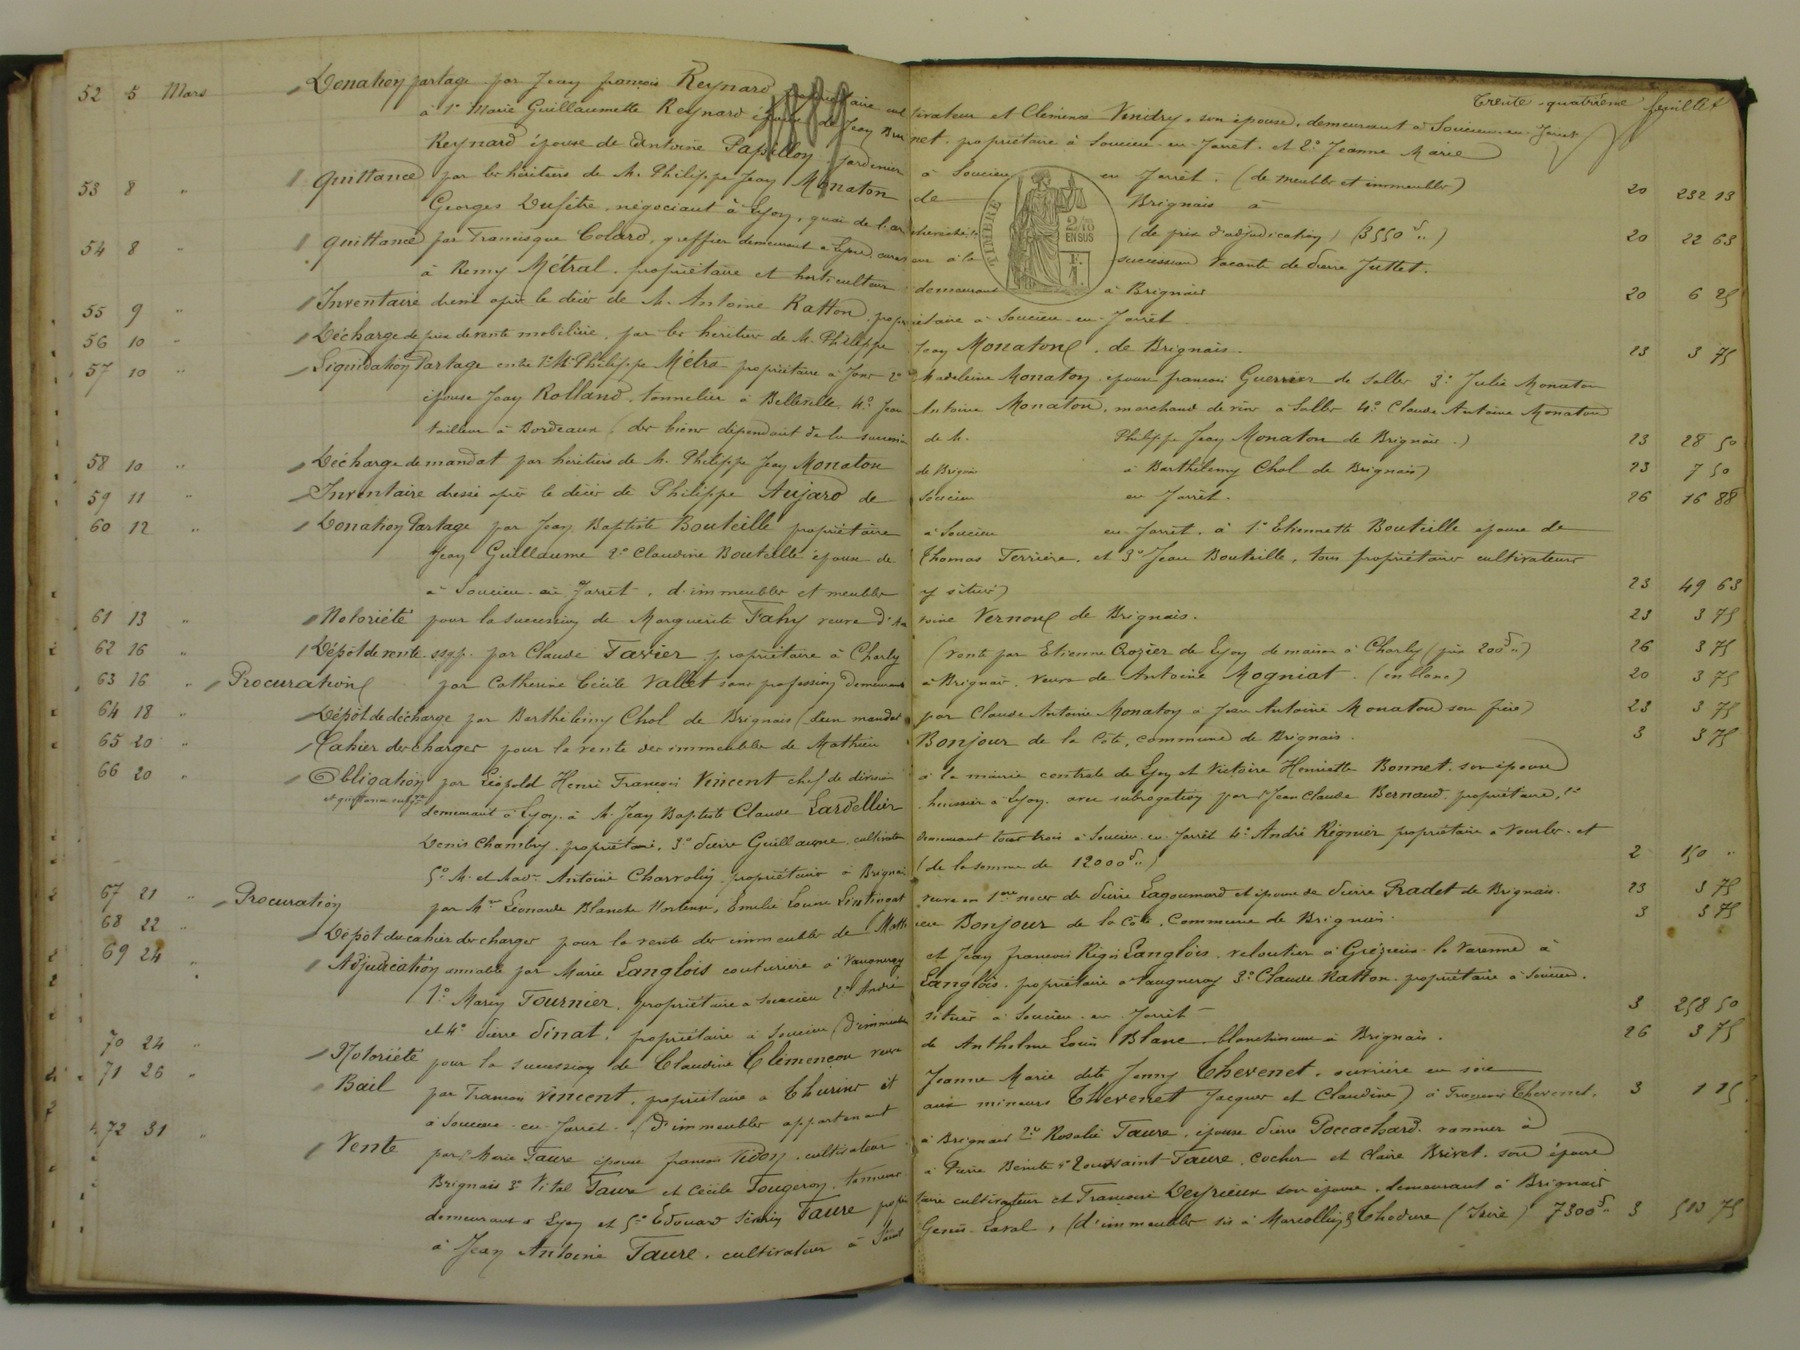 Trente-quatrième feuillet
1889
52 5 Mars Donation partage par Jean françois Reynard propriétaire cultivateur et Clémence Vindry, son épouse, demeurant à Soucieu-en-Jarret
à 1° Marie Guillaumette Reynard épouse de Jean Brunet, propriétaire à Soucieu-en-Jarret et 2° Jeanne Marie
Reynard épouse de Antoine Papillon, jardinier à Soucieu en Jarret. (de meubles et immeubles) 20 232 13
53 8 " Quittance par les héritiers de M. Philippe Jean Monaton de Brignais à
Georges Dufêtre, négociant à Lyon, quai de l'archevêché (de prix d'adjudication) (3550 f) 20 22 63
54 8 " Quittance par Francisque Colard, greffier demeurant à Lyon, à la succession vacante de Pierre Juttet.
à Remy Métral, propriétaire et horticulteur demeurant à Brignais 20 6 25
55 9 " Inventaire dressé après le décès de M. Antoine Ratton, propriétaire à Soucieu-en-Jarrêt
56 10 " Décharge de prix de vente mobilière, par les héritiers de M. Philippe Jean Monaton, de Brignais. 23 3 75
57 10 " Liquidation Partage entre 1° Philippe Métra propriétaire à 2° Madeleine Monaton épouse françois Guerrier de Salles 3° Julie Monaton
épouse Jean Rolland, tonnelier à Belleville 4° Jean Antoine Monaton, marchand de vins à Salles 4° Claude Antoine Monaton
tailleur à Bordeaux, des biens dépendant de la succession de M. Philippe Jean Monaton de Brignais.) 23 28 50
58 10 " Décharge de mandat par héritiers de M. Philippe Jean Monaton de Brignais à Barthélemy Chol de Brignais) 23 7 50
59 11 " Inventaire dressé après le décès de Philippe Aujard de Soucieu en Jarrêt. 26 16 88
60 12 " Donation Partage par Jean Baptiste Bouteille propriétaire à Soucieu en Jarrêt, à 1° Etiennette Bouteille épouse de
Jean Guillaume 2° Claudine Bouteille épouse de Thomas Ferrière, et 3° Jean Bouteille, tous propriétaires cultivateurs
à Soucieu-en-Jarrêt, d'immeubles et meubles y situés) 23 49 63
61 13 " Notoriété pour la succession de Marguerite Fahy veuve d'Antoine Vernoud de Brignais. 23 3 75
62 16 " Dépôt de vente s.s.p. par Claude Favier propriétaire à Charly (vente par Etienne Crozier de Lyon de maison à Charly (prix 200 f) 26 3 75
63 16 " Procuration par Catherine Cécile Vallet sans profession demeurant à Brignais, veuve de Antoine Mogniat. (en blanc) 20 3 75
64 18 " Dépôt de décharge par Barthélemy Chol de Brignais (d'un mandat par Claude Antoine Monaton à Jean Antoine Monaton son frère) 23 3 75
65 20 " Cahier des charges pour la vente des immeubles de Mathieu Bonjour de la Côte, commune de Brignais. 3 3 75
66 20 " Obligation par Léopold Henri François Vincent chef de division à la mairie centrale de Lyon et Victoire Henriette Bonnet, son épouse
et quittance subr. demeurant à Lyon, à M. Jean Baptiste Claude Lardellier, huissier à Lyon, avec subrogation par 1° Jean Claude Bernaud, propriétaire, 2°
Denis Chambry, propriétaire, 3° Pierre Guillaume, cultivateur demeurant tous trois à Soucieu-en-Jarrêt 4° André Régnier propriétaire à Vourles et
5° M. et Mad. Antoine Charrolin, propriétaire à Brignais (de la somme de 12000 f) 2 150 "
67 21 " Procuration par Mme Léonarde Blanche Hortense, Emélie Louise veuve en 1res noces de Pierre Lagoumard et épouse de Pierre Pradet de Brignais. 23 3 75
68 22 " Dépôt du cahier des charges pour la vente des immeubles de Mathieu Bonjour de la Côte, Commune de Brignais. 3 3 75
69 24 " Adjudication annable par Marie Langlois couturière à Vaugneray et Jean françois Régis Langlois, veloutier à Grézieu-la-Varenne à
1° Marin Fournier, propriétaire à Soucieu 2° André Langlois, propriétaire à Vaugneray 3° Claude Ratton, propriétaire à Soucieu.
et 4° Pierre Pinat, propriétaire à Soucieu (d'immeubles situés à Soucieu-en-Jarrêt 3 258 50
70 24 " Notoriété pour la succession de Claudine Clémençon veuve de Anthelme Louis Blanc, blanchisseuse à Brignais. 26 3 75
71 26 " Bail par Francois Vincent, propriétaire à Thurins et Jeanne Marie dite Jenny Thevenet, ouvrière en soie
à Soucieu-en-Jarrêt (d'immeubles appartenant aux mineurs Thevenet Jacques et Claudine) à Francois Thevenet. 3 1 25
72 31 " Vente par 1° Marie Faure épouse françois Vidon, cultivateur à Brignais 2° Rosalie Faure, épouse Pierre Poccachard, vannier à
Brignais 3° Vital Faure et Cécile Fougeron, tanneur à Pierre Bénite 4° Toussaint Faure, cocher et Claire Brivet, son épouse
demeurant à Lyon et 5° Edouard Faure propriétaire cultivateur et Francoise Deyrieux son épouse, demeurant à Brignais
à Jean Antoine Faure, cultivateur à Saint Genis-Laval, (d'immeubles sis à Marcollin & Thodure (Isère) 7300 f 3 513 75
TIMBRE
2/10
EN SUS